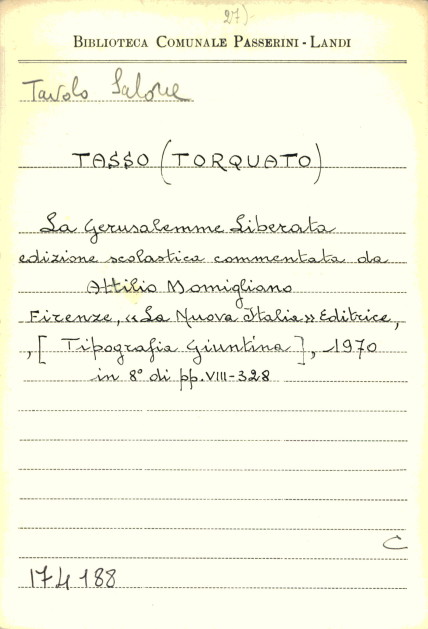 27)-
BIBLIOTECA COMUNALE PASSERINI - LANDI
Tavolo Salone
TASSO (TORQUATO)
La Gerusalemme Liberata
edizione scolastica commentata da
Attilio Momigliano
Firenze, «La Nuova Italia» Editrice,
, [Tipografia Giuntina], 1970
in 8° di pp. VIII-328
C
174188